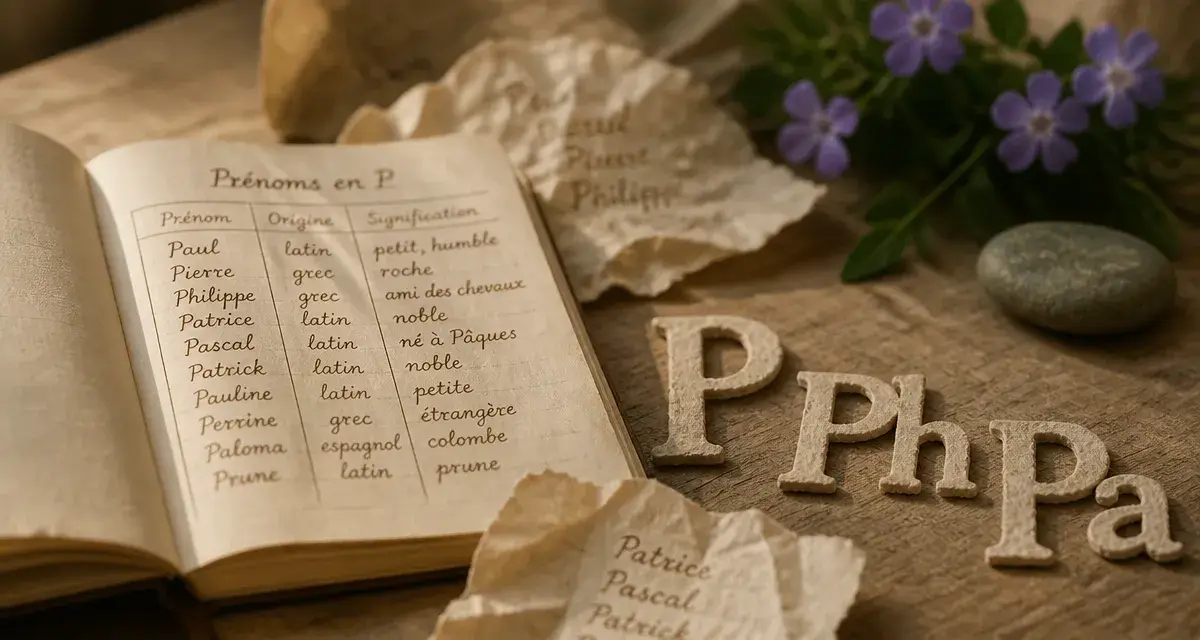 Prénoms en P
Prénom Origine Signification
Paul latin petit, humble
Pierre grec roche
Philippe grec ami des chevaux
Patrice latin noble
Pascal latin né à Pâques
Patrick latin noble
Pauline latin petite
Perrine grec étrangère
Paloma espagnol colombe
Prune latin prune
Philipp
Patrice
Pascal
Patrick
P Ph Pa